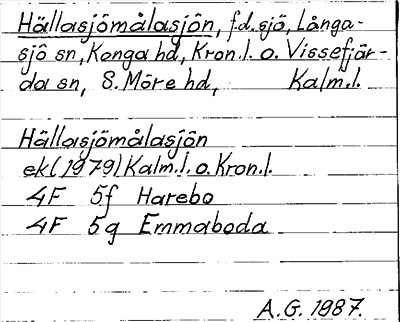 Hällasjömålasjön, f.d. sjö, Långa-
sjö sn, Konga hd, Kron.l. o. Vissefjär-
da sn, S. Möre hd, Kalm.l.
Hällasjömålasjön
ek (1979) Kalm.l. o. Kron.l.
4F 5f Harebo
4F 5g Emmaboda
A.G. 1987.